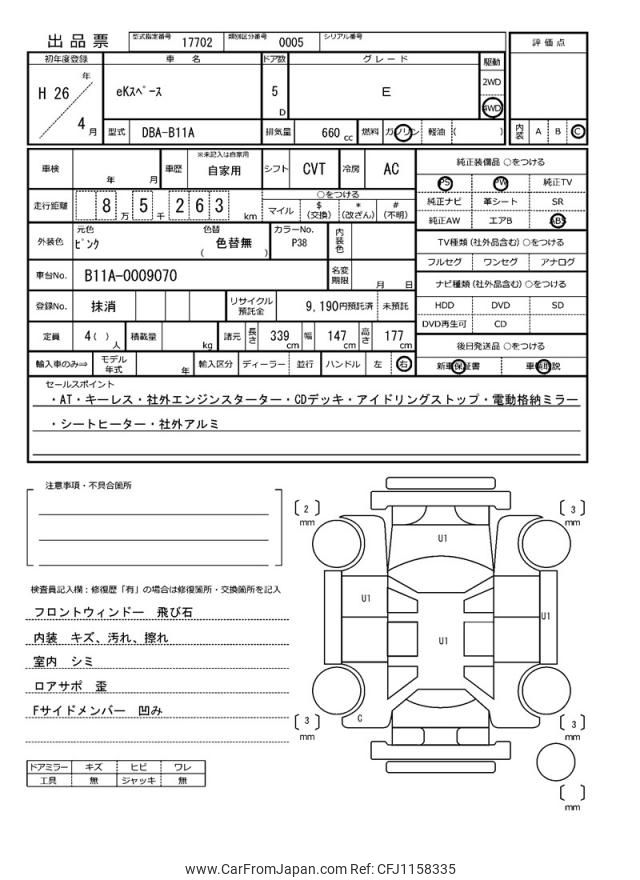 出品票
型式指定番号 17702 類別区分番号 0005 シリアル番号
評価点
初年度登録 車名 ドア数 グレード 駆動
H 26 年 4 月
eKｽﾍﾟｰｽ 5 D E 2WD 4WD
型式 DBA-B11A 排気量 660 cc 燃料 ガソリン 軽油 ( )
内装 A B C
車検 年 月 車歴 ※未記入は自家用 自家用 シフト CVT 冷房 AC
純正装備品 ○をつける
PS PW 純正TV
純正ナビ 革シート SR
純正AW エアB ABS
走行距離 8 万 5 千 2 6 3 km
○をつける
マイル $ (交換) * (改ざん) # (不明)
外装色 元色 ﾋﾟﾝｸ 色替 色替無 ( ) カラーNo. P38 内装色
TV種類 (社外品含む) ○をつける
フルセグ ワンセグ アナログ
車台No. B11A-0009070 名変期限 月 日
ナビ種類 (社外品含む) ○をつける
HDD DVD SD
DVD再生可 CD
登録No. 抹消 リサイクル預託金 9,190円預託済 未預託
定員 4( ) 人 積載量 kg 諸元 長さ 339 cm 幅 147 cm 高さ 177 cm
後日発送品 ○をつける
新車保証書 車輌取説
輸入車のみ⇒ モデル年式 年 輸入区分 ディーラー 並行 ハンドル 左 右
セールスポイント
・AT・キーレス・社外エンジンスターター・CDデッキ・アイドリングストップ・電動格納ミラー
・シートヒーター・社外アルミ
注意事項・不具合箇所
検査員記入欄：修復歴「有」の場合は修復箇所・交換箇所を記入
フロントウィンドー 飛び石
内装 キズ、汚れ、擦れ
室内 シミ
ロアサポ 歪
Fサイドメンバー 凹み
ドアミラー キズ ヒビ ワレ
工具 無 ジャッキ 無
2 mm
3 mm
U1
U1
U1
U1
G
3 mm
3 mm
mm
www.CarFromJapan.com Ref: CFJ1158335